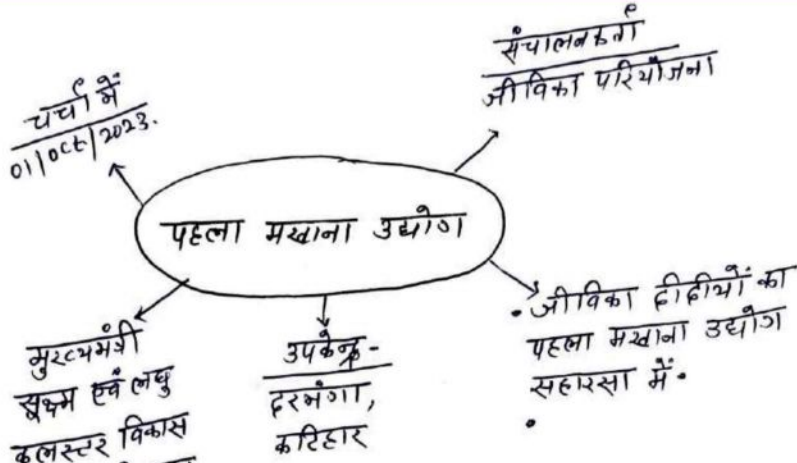 चर्चा में
01/Oct/2023.
संचालनकर्ता
जीविका परियोजना
पहला मखाना उद्योग
मुख्यमंत्री
सूक्ष्म एवं लघु
कलस्टर विकास
उपकेन्द्र -
दरभंगा,
कटिहार
• जीविका दीदीयों का
पहला मखाना उद्योग
सहारसा में •